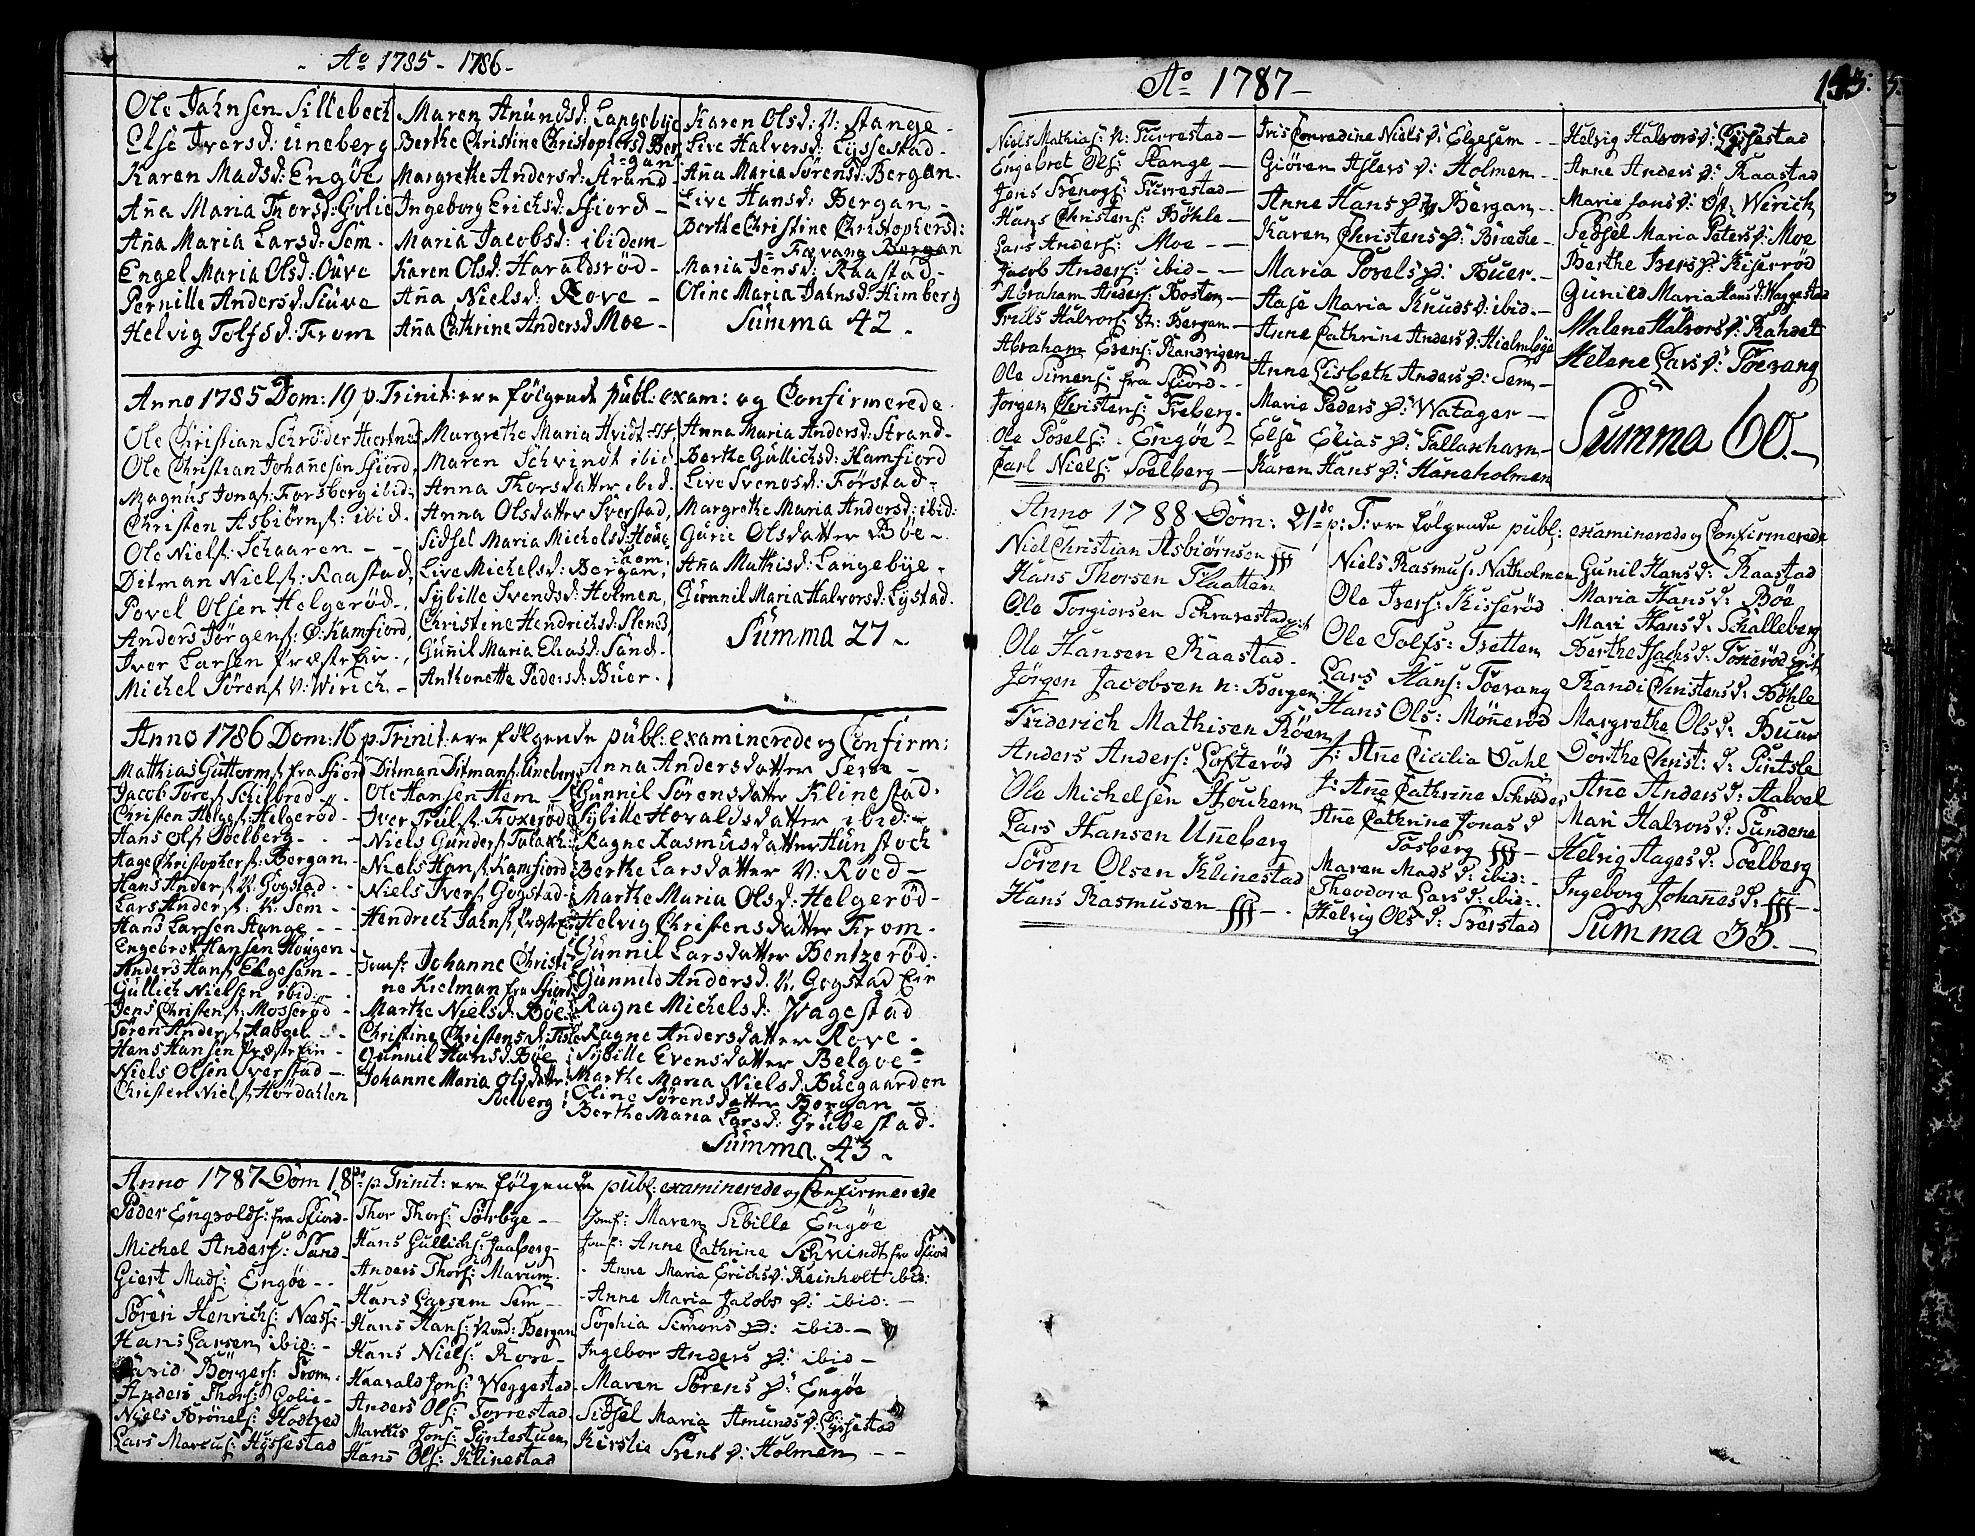 Ao 1785 - 1786 -
Ole Jahnsen Sillebech
Else Iversd: Uneberg
Karen Madsd: Engöe
Aña Maria Thorsd: Golie
Aña Maria Larsd: Sem -
Engel Maria Olsd: Ouve
Pernille Andersd: Stüve
Helvig Tolfsd: From
Maren Anundsd: Langebye
Berthe Christine Christophersd Ber
gan
Margrethe Andersd: Strand
Ingeborg Erichsd: Sfiord -
Maria Jacobsd: ibidem -
Karen Olsd: Haraldsröd -
Aña Nielsd: Rove -
Aña Cathrine Andersd Moe -
Karen Olsd: N: Stange -
Live Halversd: Lyssestad -
Aña Maria Sörensd: Bergan -
Live Hansd: Bergan -
Berthe Christine Christophersd:
Forvang Bergan
Maria Jensd: Raastad -
Oline Maria Jahnsd: Himberg
Summa 42 -
Anno 1785 Dom: 19 p. Trinit: ere fölgende publ: exam: og Confirmerede
Ole Christian Schröder Hertnes
Ole Christian Johañesen Sfiord
Magnus Jonas: Forsberg ibid -
Christen Asbiörns: ibid -
Ole Niels: Schaaren - -
Ditman Niels: Raastad
Povel Olsen Helgeröd -
Anders Jörgens: Ø: Kamfiord
Iver Larsen Præste Ein -
Michel Sörens: N: Wirich -
Margrethe Maria Hvidt Sff.
Maren Schvindt ibid
Anna Thorsdatter ibid
Anna Olsdatter Sverstad
Sidsel Maria Michelsd: Houg
hem
Live Michelsd: Bergan
Sybille Svendsd: Holmen
Christine Hendrichsd: Slens
Guñil Maria Eliasd: Sand -
Anthonette Pedersd: Buer -
Anna Maria Andersd: Strand -
Berthe Gullichsd: Hamfiord
Live Svenosd: Förstad -
Margrethe Maria Andersd: ibid:
Gurie Olsdatter Böe -
Aña Mathisd: Langebye -
Guñnil Maria Halvorsd: Lystad
Summa 27 -
Anno 1786 Dom: 16 p. Trinit: ere fölgende publ: examinerede og Confirm:
Mathias Guttorms: fra Sfiord
Jacob Tores: Schilbred -
Christen Helges: Helgeröd -
Hans Ols: Soelberg -
Hage Christophers: Bergan -
Hans Anders: N: Gogstad - -
Lars Anders: N: Sem - -
Hans Larsen Stange - -
Engebret Hansen Hougen -
Anders Hans: Elgesem - -
Güllich Nielsen ibid: -
Jens Christens: Mosseröd -
Sören Anders: Aaboel - -
Hans Hansen Præste Ein -
Niels Olsen Sverstad -
Christen Niels: Hördahlen
Ditman Ditmans: Uneberg
Ole Hansen Hem -
Iver Truls: Foxeröd
Niels Gunders: Talakh:
Niels Hans: Kamfiord
Niels Ivers: Gogstad -
Hendrich Jahns: Præste Ein
Jomf: Johanne Christi
ne Kielman fra Sfiord
Marthe Nielsd: Böe
Christine Christensd: Fisle
Guñnil Hansd: Böe
Johanne Maria Olsdatter
Soelberg
Anna Andersdatter Serve -
Guñnil Sörensdatter Klinestad -
Sybille Horaldsdatter ibid: -
Ragne Rasmusdatter Hunstoch
Berthe Larsdatter N: Röed -
Marthe Maria Olsd: Helgeröd -
Helvig Christensdatter From -
Guñnil Larsdatter Bentzeröd:
Guñnild Andersd: N: Gogstad Ein
Ragne Michelsd: Vagestad
Ragne Andersdatter Rove -
Sybille Evensdatter Belgoe -
Marthe Maria Nielsd: Buegaarden
Oline Sörensdatter Bergan -
Berthe Maria Larsd: Grübestad -
Summa 43 -
Anno 1787 Dom 18de p Trinit: ere fölgende publ: examinerede og Confirmerede
Peder Engvolds: fra Sfiord -
Michel Anders: Sand -
Giert Mads: Engöe - -
Sören Henrichs: Næss: -
Hans Larsen ibid: -
Börges: From -
Anders Thors: Golie -
Niels Brönels: Hodtved
Lars Marcus: Hyssestad
Thor Thors: Sörbye -
Hans Gullichs: Jaaberg -
Anders Thors: Marum -
Hans Larsen Sem -
Hans Hans: Nord: Bergan
Hans Niels: Rove -
Haavald Jons: Weggestad
Anders Ols: Torrestad
Marcus Jons: Syntestuen
Hans Ols: Klinestad
Jomf: Maren Sibille Engöe
Jomf: Anne Cathrine Schvindt fra Sfiord
- Anne Maria Erichs D: Reinholt ibid:
- Anne Maria Jacobs D: ibid: -
Sophia Simons D: ibid -
Ingebor Anders D: ibid -
Maren Sörens D: Engöe
Sidsel Maria Amunds D: Lyssestad
Kirstie Svens D: Holmen - -
Ao 1787 -
Niels Mathias: N: Furrestad -
Engebret Ols: Stange -
Jens Svenogs: Furrestad -
Hans Christens: Böhle -
Lars Anders: Moe - -
Jacob Anders: ibid - -
Abraham Anders: Bosten -
Truls Halvors: N: Bergan -
Abraham Evens: Randvigen
Ole Simens: fra Sfiord - -
Jorgen Christens: Freberg -
Ole Povels: Engöe -
Carl Niels: Soelberg -
Iris Conradine Niels D: Elgesem - -
Giören Aslers D: Holmen - -
Anne Hans D: N Bergan - -
Karen Christens D: Bræche -
Maria Povels D: Buer -
Aase Maria Knuds D: ibid -
Anne Cathrine Anders D: Hielmbye
Anne Lisbeth Anders D: Sem -
Marie Peders D: Watager -
Else Elias D: Tallaxhavn -
Karen Hans D: Haneholmen
Helvig Halvors D: Lyssestad
Anne Anders D: Raastad
Marie Jons D: Øst: Wirich
Sidsel Maria Peters D: Moe
Berthe Ivers D: Kiseröd
Gunild Maria Hans D: Waggestad
Malene Halvors D: Rahvet
Helene Lars D: Toevang
Summa 60 -
Anno 1788 Dom: 21de p: T: ere fölgende publ: examinerede og Confirmerede
Niel Christian Asbiörnsen Sff
Hans Thorsen Flaatten
Ole Torgiorsen Schravestad
Ole Hansen Raastad -
Jörgen Jacobsen N: Bergen
Friderich Mathisen Röen
Anders Anders: Lofteröd
Ole Michelsen Houhem
Lars Hansen Uñeberg
Sören Olsen Klinestad
Hans Rasmusen Sff -
Niels Rasmus: Natholmen
Ole Ivers: Kisseröd
Ole Tolfs: Tvetten
Lars Hans: Toevang
Hans Ols: Möñeröd
J: Añe Cicilia Dahl
J: Añe Cathrine Schröder
Añe Cathrine Jonas D
Fosberg Sff -
Maren Mads D: ibid: -
Theodora Lars D: ibid: -
Helvig Ols D: Sverstad
Gunil Hans D: Raastad
Maria Hans D: Böe
Mari Hans D: Schalleberg
Berthe Isachs D: Toñeröd
Randi Christens D: Böhle
Margrethe Ols D: Buur
Dorthe Christ: D: Pintsle
Añe Anders D: Aaboel
Mari Halvors D: Sundene
Helvig Hages D: Soelberg
Ingeborg Johañes D: Sff -
Summa 33 -